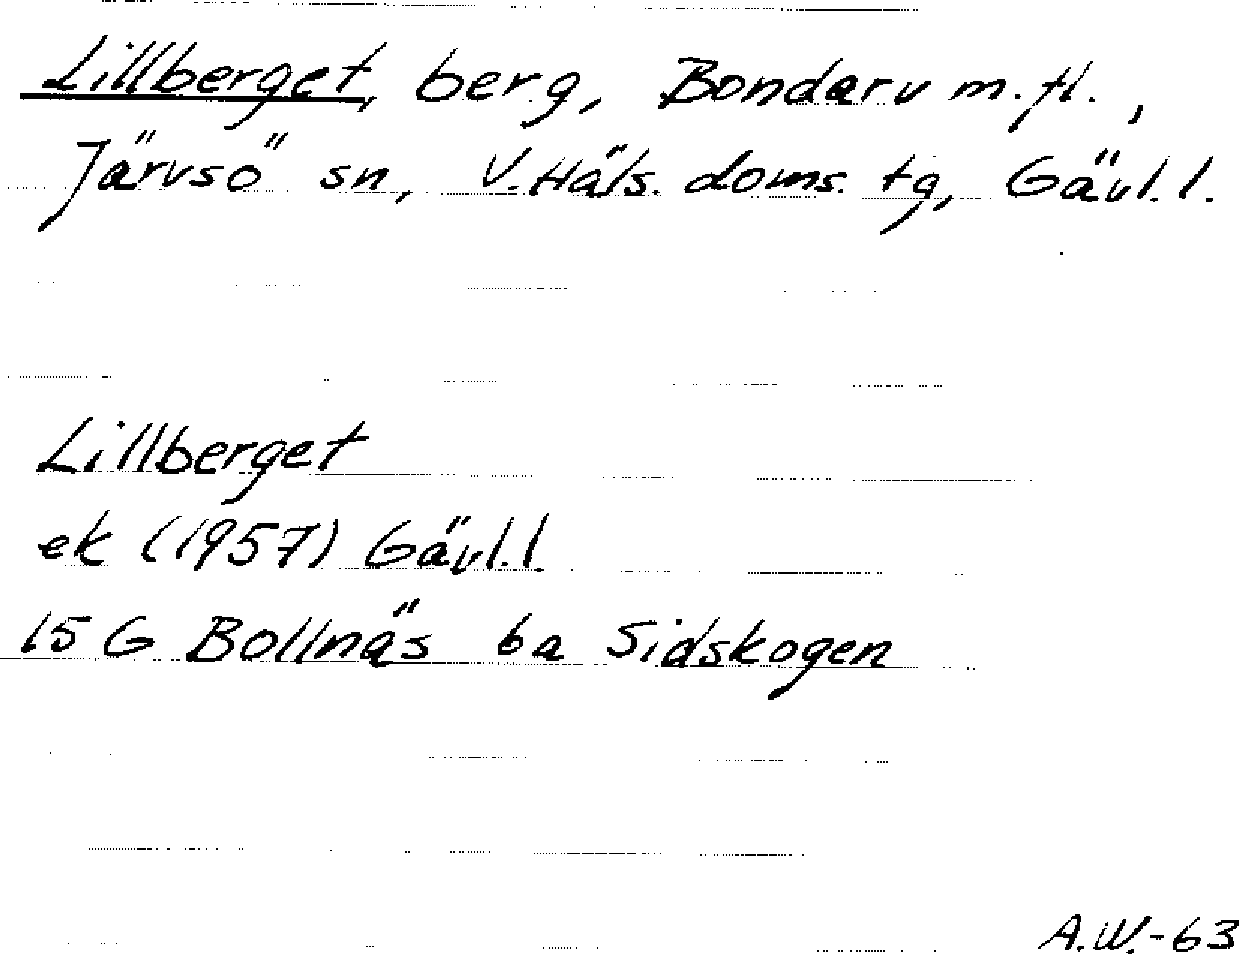 Lillberget, berg, Bondarv m.fl.,
Järvsö sn, V.Häls. doms. tg, Gävl.l.
Lillberget
ek (1957) Gävl.l.
15 G Bollnäs 6a Sidskogen
A.W.-63